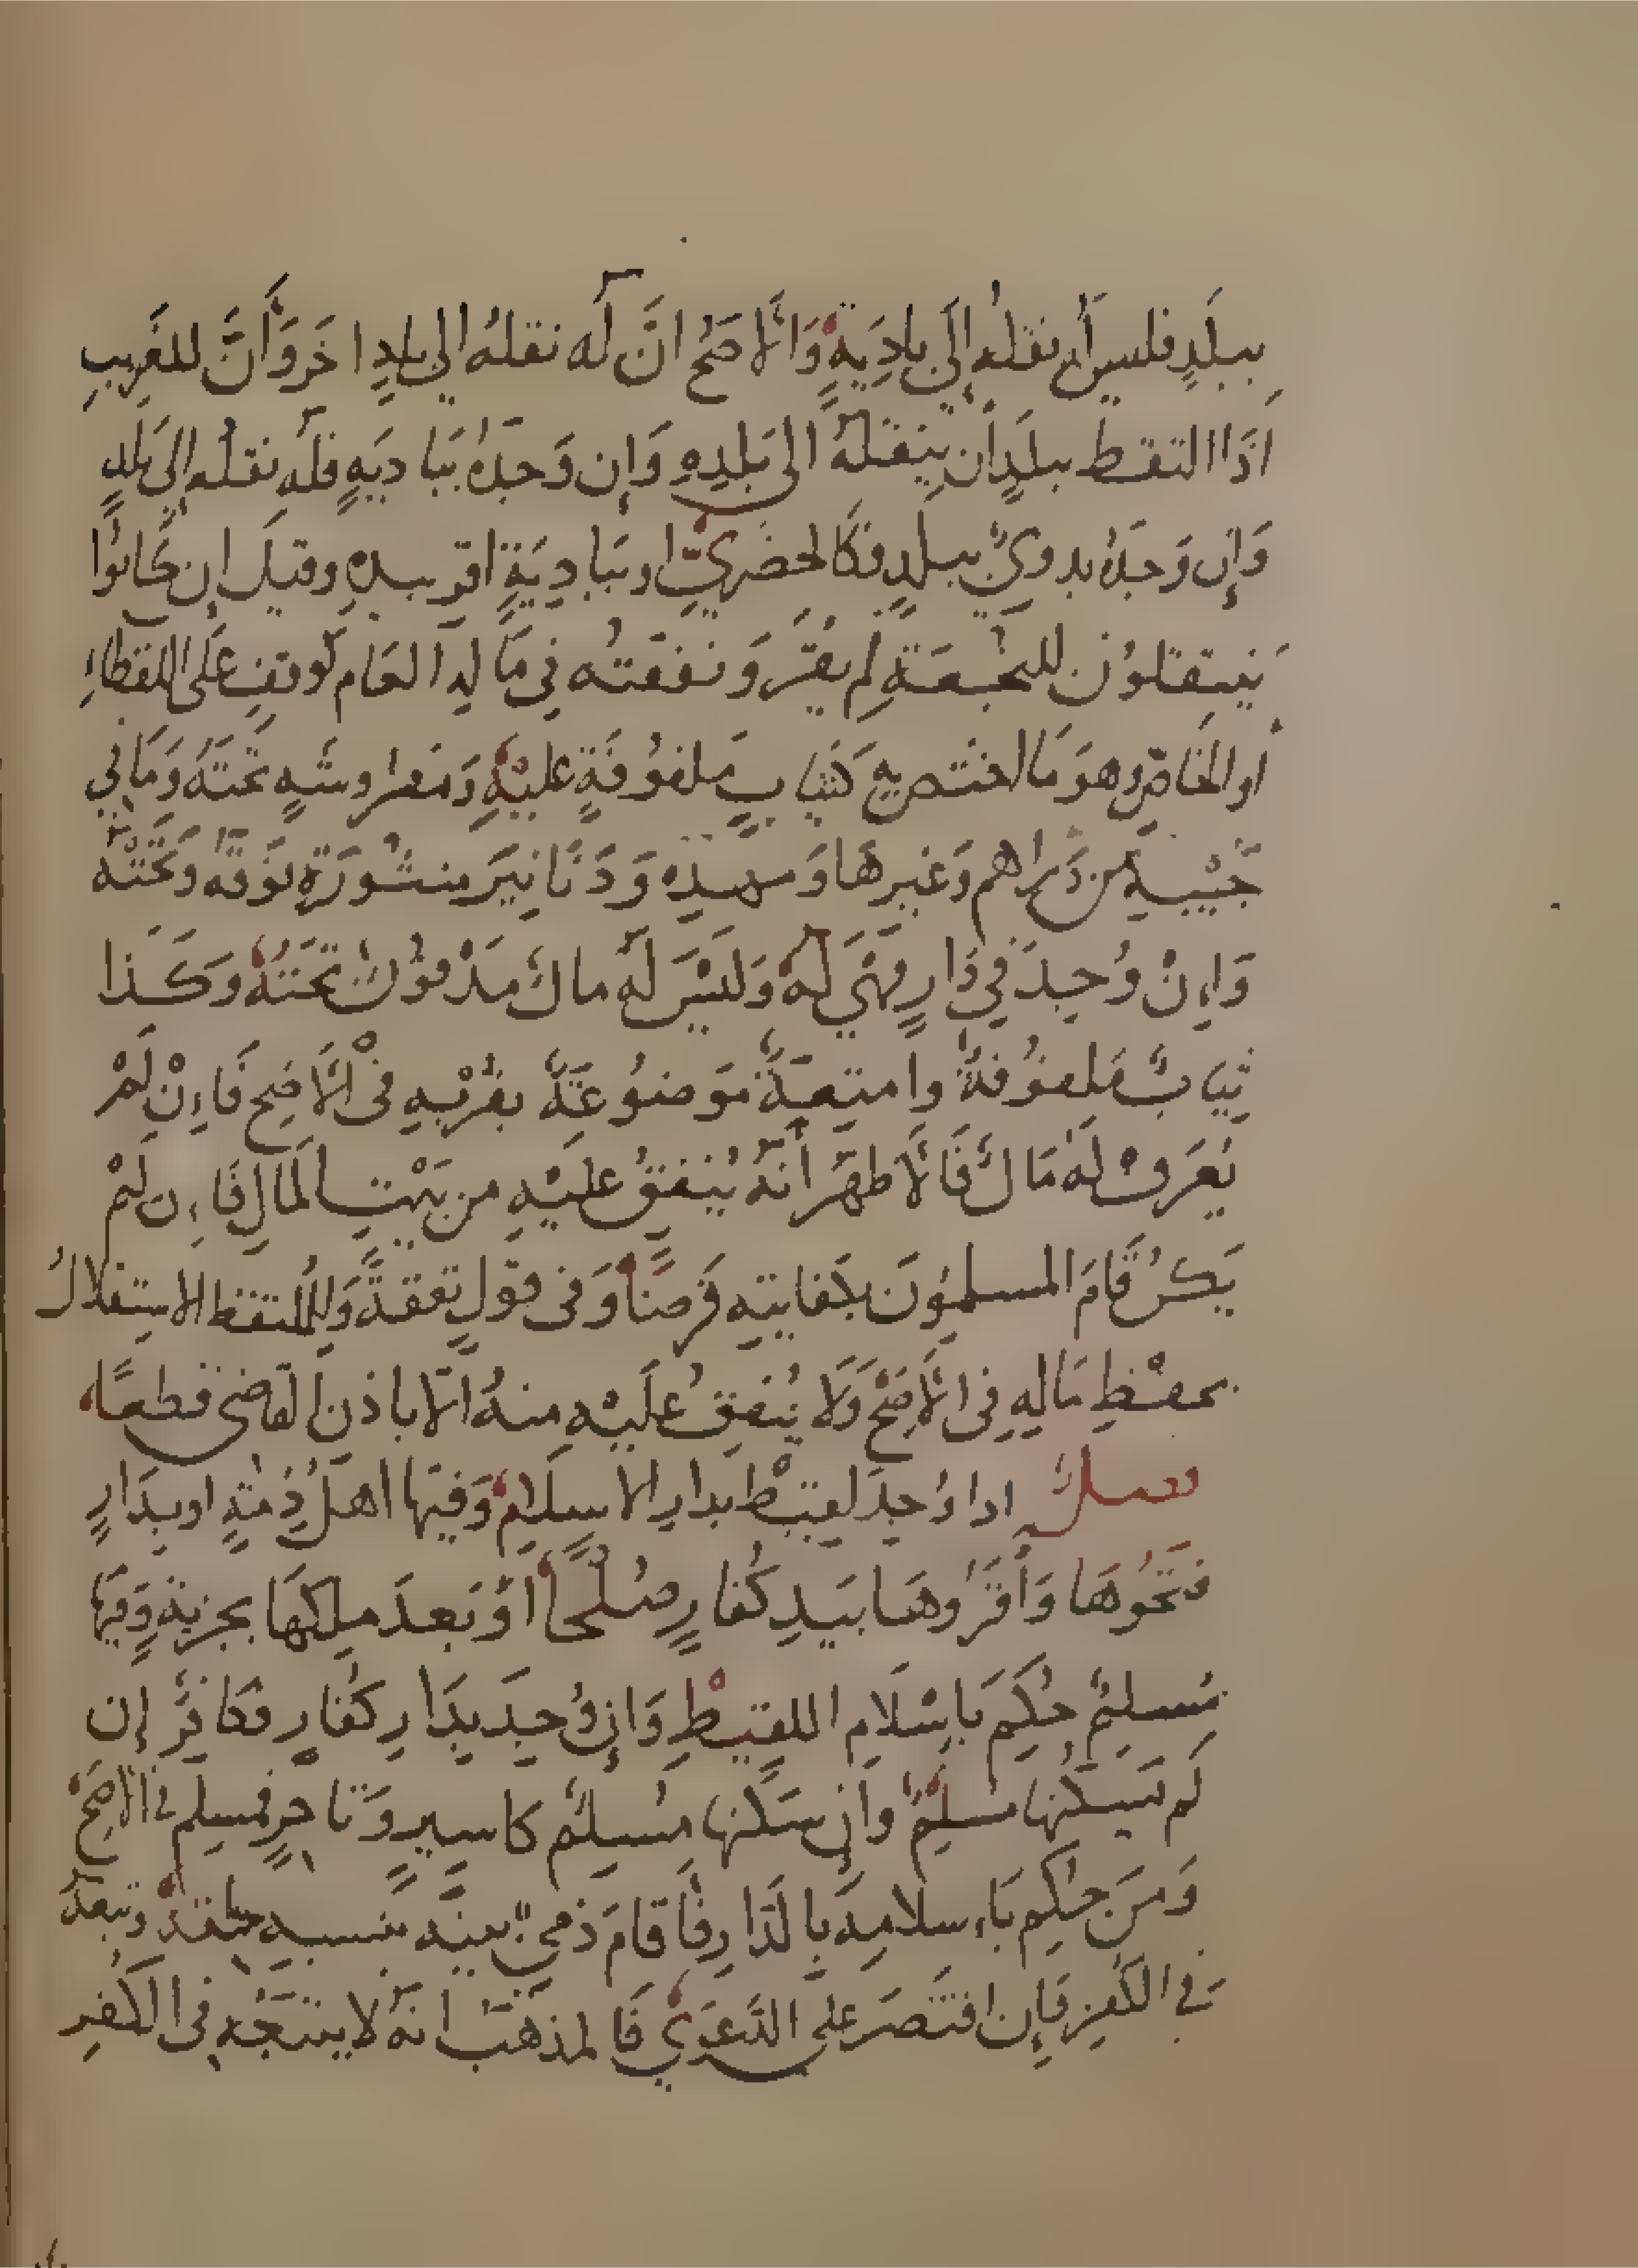 ببلد فليس له نقله إلى بادية والأصح ان له نقله الى بلد اخر وأن للغريب
اذا التقط ببلد ان ينقله الى بلده وإن وجده ببادية فله نقله إلى بلد
وإن وجده بدوي ببلد فكالحضري او ببادية اقر بيده وقيل إن كانوا
ينتقلون للنجعة لم يقر ونفقته في ماله العام كوقف على اللقطاء
او الخاص وهو ما اختص به كثياب ملفوفة عليه ومفروشه تحته وما في
جيبه من دراهم وغيرها ومهده ودنانير منثورة فوقه وتحته
وإن وجد في دار فهي له وليس له مال مدفون تحته وكذا
ثياب ملفوفة وامتعة موضوعة بقربه في الأصح فإن لم
يعرف له مال فالأظهر أنه ينفق عليه من بيت المال فإن لم
يكن قام المسلمون بكفايته قرضا وفي قول نفقة وللملتقط الاستقلال
بحفظ ماله في الأصح ولا ينفق عليه منه الا باذن القاضي قطعا
فصل اذا وجد لقيط بدار الاسلام وفيها اهل ذمة او بدار
فتحوها وأقروها بيد كفار صلحا أو بعد ملكها بجزية وفيها
مسلم حكم بإسلام اللقيط وإن وجد بدار كفار فكافر إن
لم يسكنها مسلم وان سكنها مسلم كاسير وتاجر فمسلم في الأصح
ومن حكم بإسلامه بالدار فأقام ذمي بينه بنسبه لحقه وتبعه
في الكفر فإن اقتصر على الدعوى فالمذهب انه لا يتبعه في الكفر